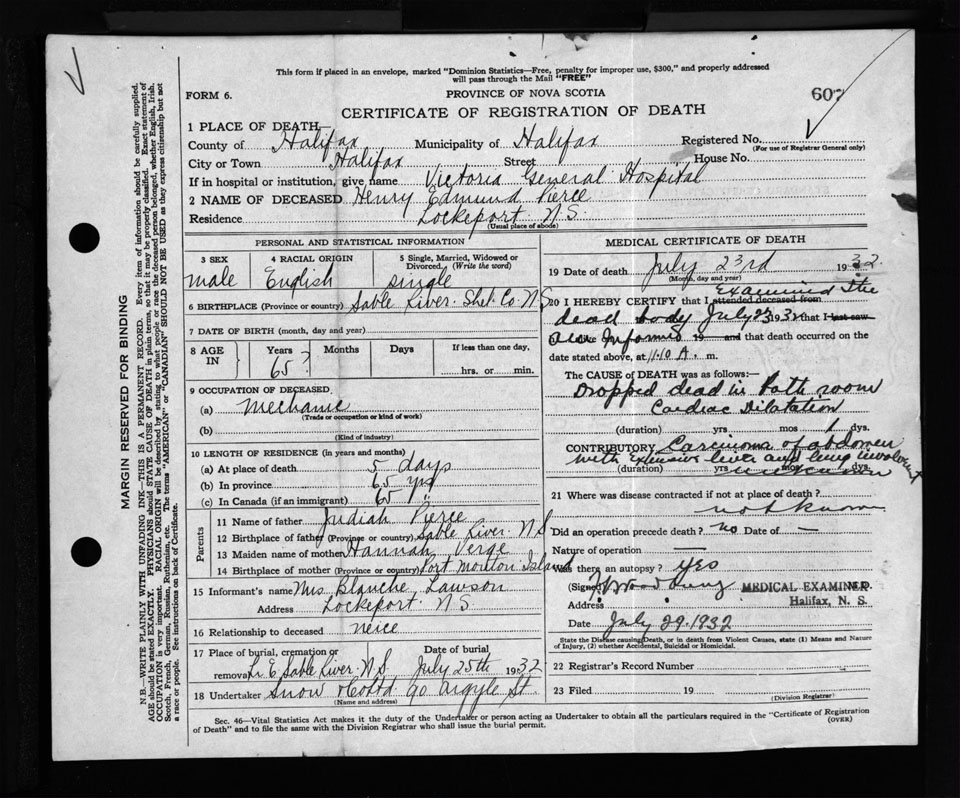 This form if placed in an envelope, marked "Dominion Statistics—Free, penalty for improper use, $300," and properly addressed
will pass through the Mail "FREE"
FORM 6.
PROVINCE OF NOVA SCOTIA
607
CERTIFICATE OF REGISTRATION OF DEATH
1 PLACE OF DEATH—
County of Halifax Municipality of Halifax Registered No.
(For use of Registrar General only)
City or Town Halifax Street House No.
If in hospital or institution, give name Victoria General Hospital
2 NAME OF DECEASED Henry Edmund Pierce
Residence Lockeport N.S.
(Usual place of abode)
PERSONAL AND STATISTICAL INFORMATION
3 SEX male
4 RACIAL ORIGIN English
5 Single, Married, Widowed or Divorced. (Write the word) single
6 BIRTHPLACE (Province or country) Sable River. Shel. Co N.S.
7 DATE OF BIRTH (month, day and year)
8 AGE IN Years Months Days If less than one day,
65? hrs. or min.
9 OCCUPATION OF DECEASED
(a) Mechanic
(Trade or occupation or kind of work)
(b)
(Kind of industry)
10 LENGTH OF RESIDENCE (in years and months)
(a) At place of death 5 days
(b) In province 65 yrs
(c) In Canada (if an immigrant) 65 "
Parents
11 Name of father Judiah Pierce
12 Birthplace of father (Province or country) Sable River. N.S
13 Maiden name of mother Hannah Verge
14 Birthplace of mother (Province or country) Port Mouton Island
15 Informant's name Mrs Blanche Lawson
Address Lockeport. N.S.
16 Relationship to deceased neice
17 Place of burial, cremation or removal Date of burial
Li E Sable River. N.S. July 25th 1932
18 Undertaker Snow & Co Ltd 90 Argyle St
(Name and address)
MEDICAL CERTIFICATE OF DEATH
19 Date of death July 23rd 1932.
(Month, day and year)
20 I HEREBY CERTIFY that I attended deceased from examined the
dead body July 23 1932 that I last saw
am Informed 19 and that death occurred on the
date stated above, at 11.10 A. m.
The CAUSE of DEATH was as follows:—
Dropped dead in Path room
Cardiac Dilatation
(duration) yrs mos 1 dys.
CONTRIBUTORY Carcinoma of abdomen
with extensive liver and lung involvement
(duration) yrs mos dys.
21 Where was disease contracted if not at place of death?
not known
Did an operation precede death? no Date of —
Nature of operation —
Was there an autopsy? Yes
(Signed) MEDICAL EXAMINER.
Address Halifax, N. S.
Date July 29. 1932
State the Disease causing Death, or in death from Violent Causes, state (1) Means and Nature
of Injury, (2) whether Accidental, Suicidal or Homicidal.
22 Registrar's Record Number
23 Filed 19
(Division Registrar)
Sec. 46—Vital Statistics Act makes it the duty of the Undertaker or person acting as Undertaker to obtain all the particulars required in the "Certificate of Registration
of Death" and to file the same with the Division Registrar who shall issue the burial permit.
(OVER)
MARGIN RESERVED FOR BINDING
N.B.—WRITE PLAINLY WITH UNFADING INK—THIS IS A PERMANENT RECORD. Every item of information should be carefully supplied.
AGE should be stated EXACTLY. PHYSICIANS should STATE CAUSE OF DEATH in plain terms, so that it may be properly classified. Exact statement of
OCCUPATION is very important. RACIAL ORIGIN will be described by stating to what people or race the deceased person belonged, whether English, Irish,
Scotch, French, German, Russian, Ruthenian, etc. The terms "AMERICAN" or "CANADIAN" SHOULD NOT BE USED as they express citizenship but not
a race or people. See instructions on back of Certificate.